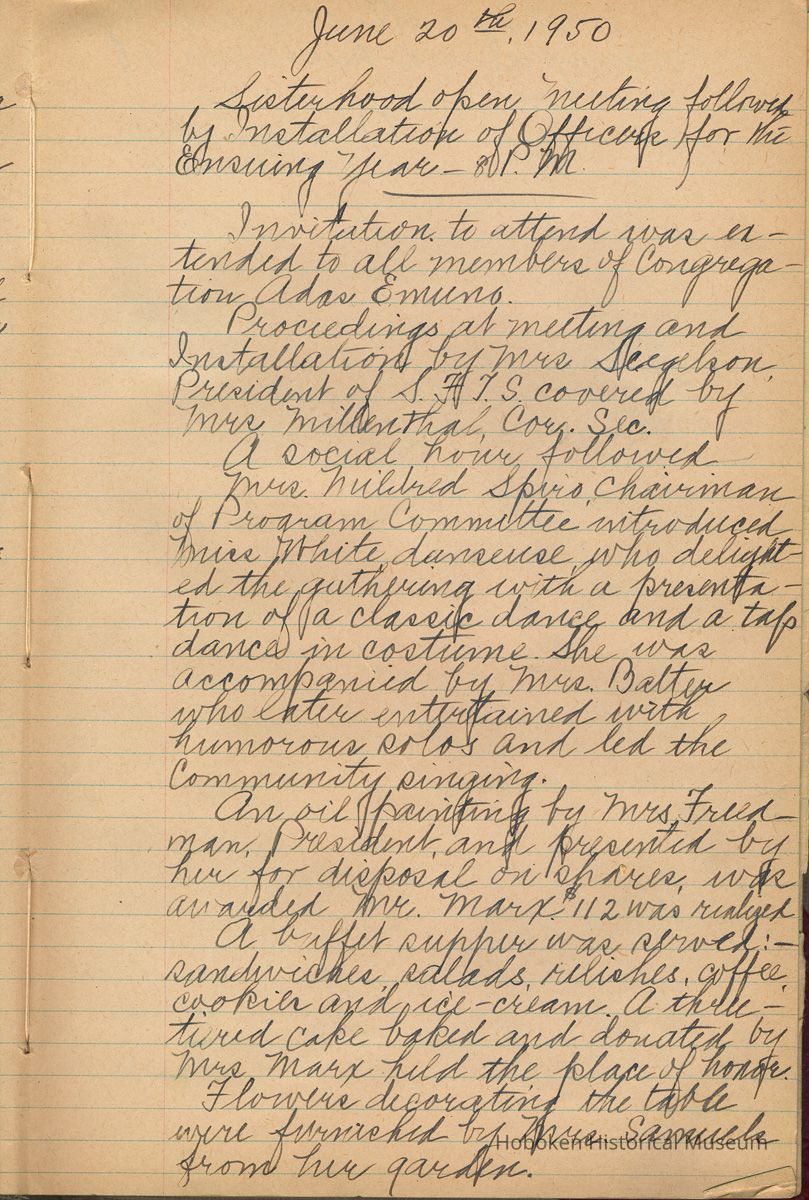 June 20th, 1950
Sisterhood open meeting followed
by Installation of Officers for the
Ensuing Year - 8 P.M.
Invitation to attend was ex-
tended to all members of Congrega-
tion Adas Emuno.
Proceedings at meeting and
Installation by Mrs Seegelson,
President of S.F.T.S. covered by
Mrs Millenthal, Cor. Sec.
A social hour followed
Mrs. Mildred Spiro, Chairman
of Program Committee introduced
Miss White, danseuse, who delight-
ed the gathering with a presenta-
tion of a classic dance and a tap
dance in costume. She was
accompanied by Mrs. Balter
who later entertained with
humorous solos and led the
Community singing.
An oil painting by Mrs. Freed-
man, President, and presented by
her for disposal on shares, was
awarded Mr. Marx. $112 was realized
A buffet supper was served:-
sandwiches, salads, relishes, coffee,
cookies and ice-cream. A three-
tiered cake baked and donated by
Mrs Marx held the place of honor.
Flowers decorating the table
were furnished by Mrs. Samuels
from her garden.
Hoboken Historical Museum